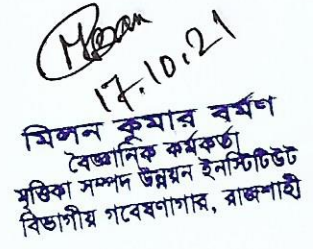 17.10.21
মিলন কুমার বর্মণ
বৈজ্ঞানিক কর্মকর্তা
মৃত্তিকা সম্পদ উন্নয়ন ইনস্টিটিউট
বিভাগীয় গবেষণাগার, রাজশাহী